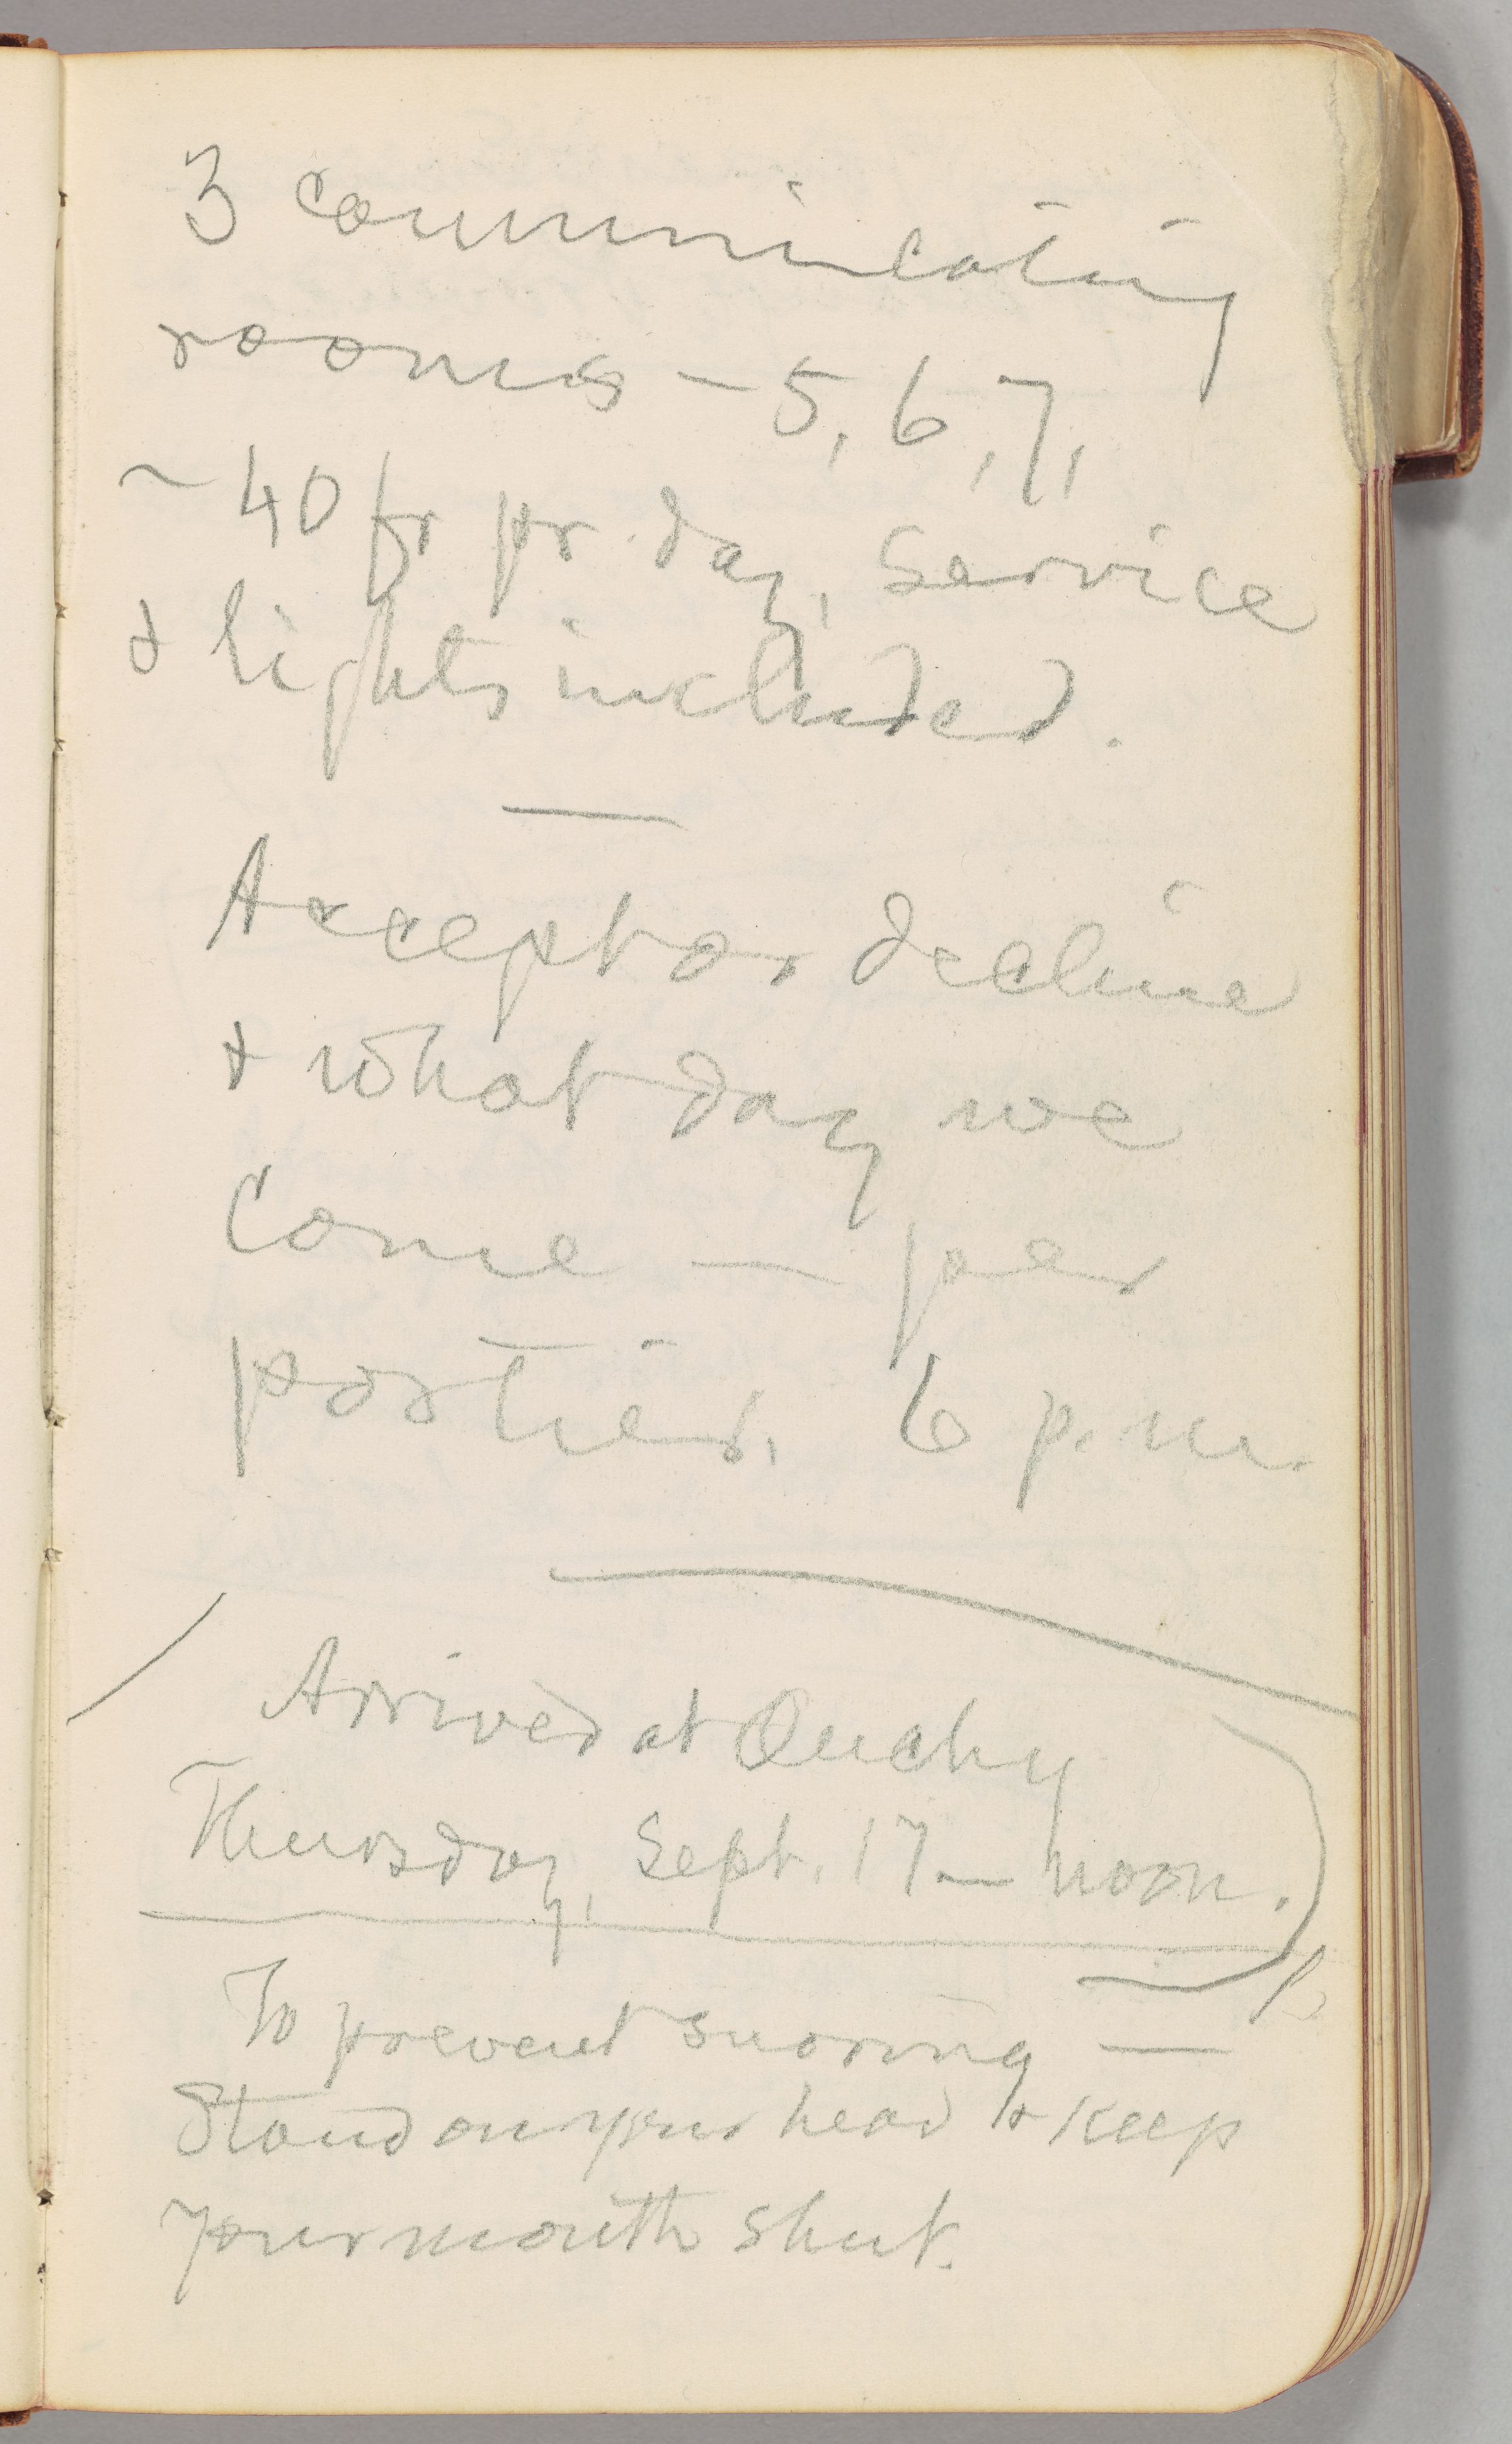 3 communicating
rooms — 5, 6, 7,
~ 40 fr pr day, service
& lights included.
Accept or decline
& what day we
come — per
portier. 6 p.m.
Arrived at Ouchy
Thursday, Sept. 17 — noon.
To prevent snoring —
Stand on your head & keep
your mouth shut.